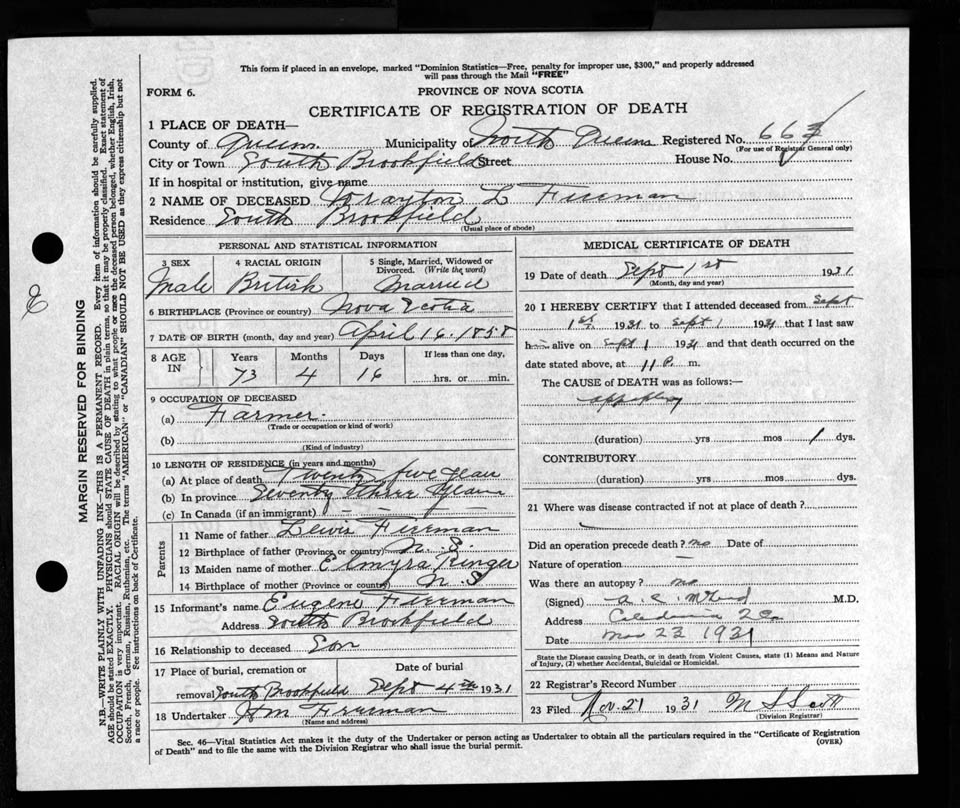 This form if placed in an envelope, marked "Dominion Statistics—Free, penalty for improper use, $300," and properly addressed
will pass through the Mail "FREE"
FORM 6.
PROVINCE OF NOVA SCOTIA
CERTIFICATE OF REGISTRATION OF DEATH
1 PLACE OF DEATH—
County of Queens Municipality of North Queens Registered No. 667
(For use of Registrar General only)
City or Town South Brookfield Street House No.
If in hospital or institution, give name
2 NAME OF DECEASED Drayton L Freeman
Residence South Brookfield
(Usual place of abode)
PERSONAL AND STATISTICAL INFORMATION
3 SEX 4 RACIAL ORIGIN 5 Single, Married, Widowed or
Divorced. (Write the word)
Male British Married
6 BIRTHPLACE (Province or country) Nova Scotia
7 DATE OF BIRTH (month, day and year) April 16, 1858
8 AGE IN Years Months Days If less than one day,
73 4 16 hrs. or min.
9 OCCUPATION OF DECEASED
(a) Farmer.
(Trade or occupation or kind of work)
(b)
(Kind of industry)
10 LENGTH OF RESIDENCE (in years and months)
(a) At place of death Twenty five years
(b) In province Seventy three years
(c) In Canada (if an immigrant) — — —
Parents
11 Name of father Lewis Freeman
12 Birthplace of father (Province or country) N. S.
13 Maiden name of mother Elmyra Ringer
14 Birthplace of mother (Province or country) N. S.
15 Informant's name Eugene Freeman
Address South Brookfield
16 Relationship to deceased Son
17 Place of burial, cremation or Date of burial
removal South Brookfield Sept 4th 1931
18 Undertaker Wm Freeman
(Name and address)
MEDICAL CERTIFICATE OF DEATH
19 Date of death Sept 1st 1931
(Month, day and year)
20 I HEREBY CERTIFY that I attended deceased from Sept
1st 1931 to Sept 1 1931 that I last saw
h alive on Sept 1 1931 and that death occurred on
date stated above, at 11 P. m.
The CAUSE of DEATH was as follows:—
apoplexy
(duration) yrs mos 1 dys.
CONTRIBUTORY
(duration) yrs mos dys.
21 Where was disease contracted if not at place of death?
Did an operation precede death? no Date of
Nature of operation —
Was there an autopsy? no
(Signed) M.D.
Address Caledonia
Date 23 1931
State the disease causing Death, or in death from Violent Causes, state (1) Means and Nature
of Injury, (2) whether Accidental, Suicidal or Homicidal.
22 Registrar's Record Number
23 Filed Nov. 21 1931 M S Scott
(Division Registrar)
Sec. 46—Vital Statistics Act makes it the duty of the Undertaker or person acting as Undertaker to obtain all the particulars required in the "Certificate of Registration
of Death" and to file the same with the Division Registrar who shall issue the burial permit.
(OVER)
MARGIN RESERVED FOR BINDING
N.B.—WRITE PLAINLY WITH UNFADING INK—THIS IS A PERMANENT RECORD. Every item of information should be carefully supplied.
AGE should be stated EXACTLY. PHYSICIANS should STATE CAUSE OF DEATH in plain terms, so that it may be properly classified. Exact statement of
OCCUPATION is very important. RACIAL ORIGIN will be described by stating to what people or race the deceased person belonged, whether English, Irish,
Scotch, French, German, Russian, Ruthenian, etc. The terms "AMERICAN" or "CANADIAN" SHOULD NOT BE USED as they express citizenship but not
a race or people. See instructions on back of Certificate.